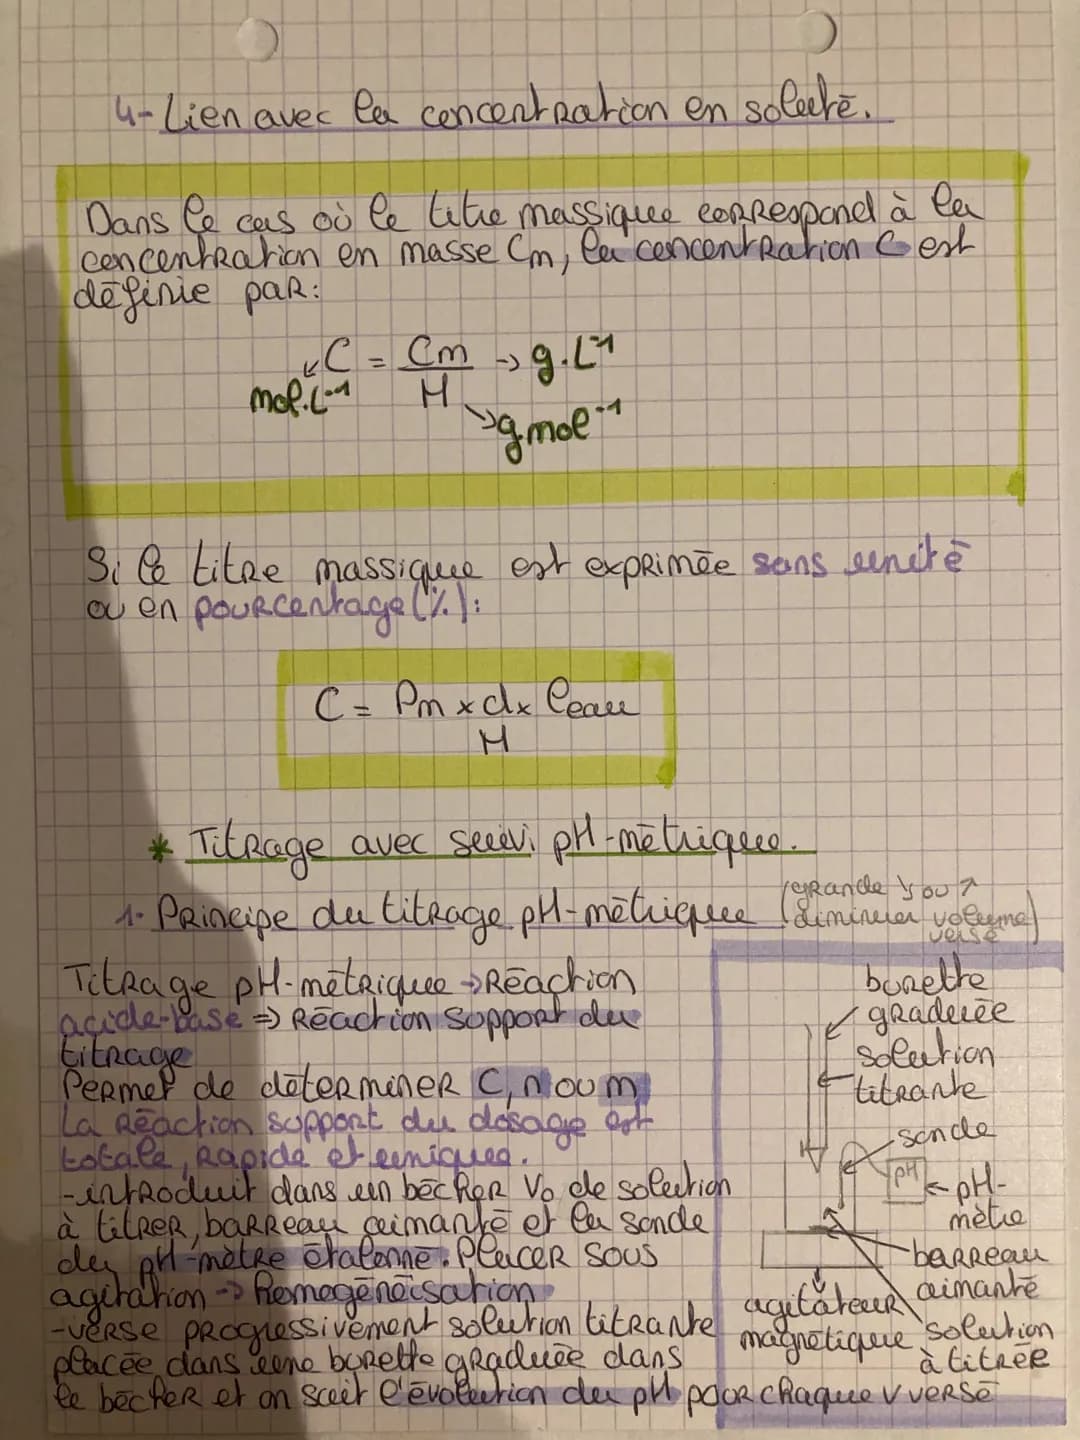 4- Lien avec la concentration en soluté.
Dans le cas où le titre massique correspond à la
concentration en masse Cm, la concentration C est
définie par:
C = Cm → g.L⁻¹
mol.L⁻¹ M
g.mol⁻¹
Si le titre massique est exprimée sans unité
ou en pourcentage (%):
C = Pm x d x ρeau
M
* Titrage avec suivi pH-métrique.
1- Principe du titrage pH-métrique (grande ↘ ou ↗
diminuer volume
versé)
Titrage pH-métrique → Réaction
acide-base => Réaction support du
titrage
Permet de déterminer C, n ou m
La réaction support du dosage est
totale, rapide et unique.
-introduit dans un bécher V₀ de solution
à titrer, barreau aimanté et la sonde
du pH-mètre étalonné. Placer sous
agitation -> Homogénéisation
-verse progressivement solution titrante
placée dans une burette graduée dans
le bécher et on suit l'évolution du pH pour chaque V versé
burette
graduée
solution
titrante
sonde
pH
pH-
mètre
barreau
aimanté
agitateur
magnétique
solution
à titrée